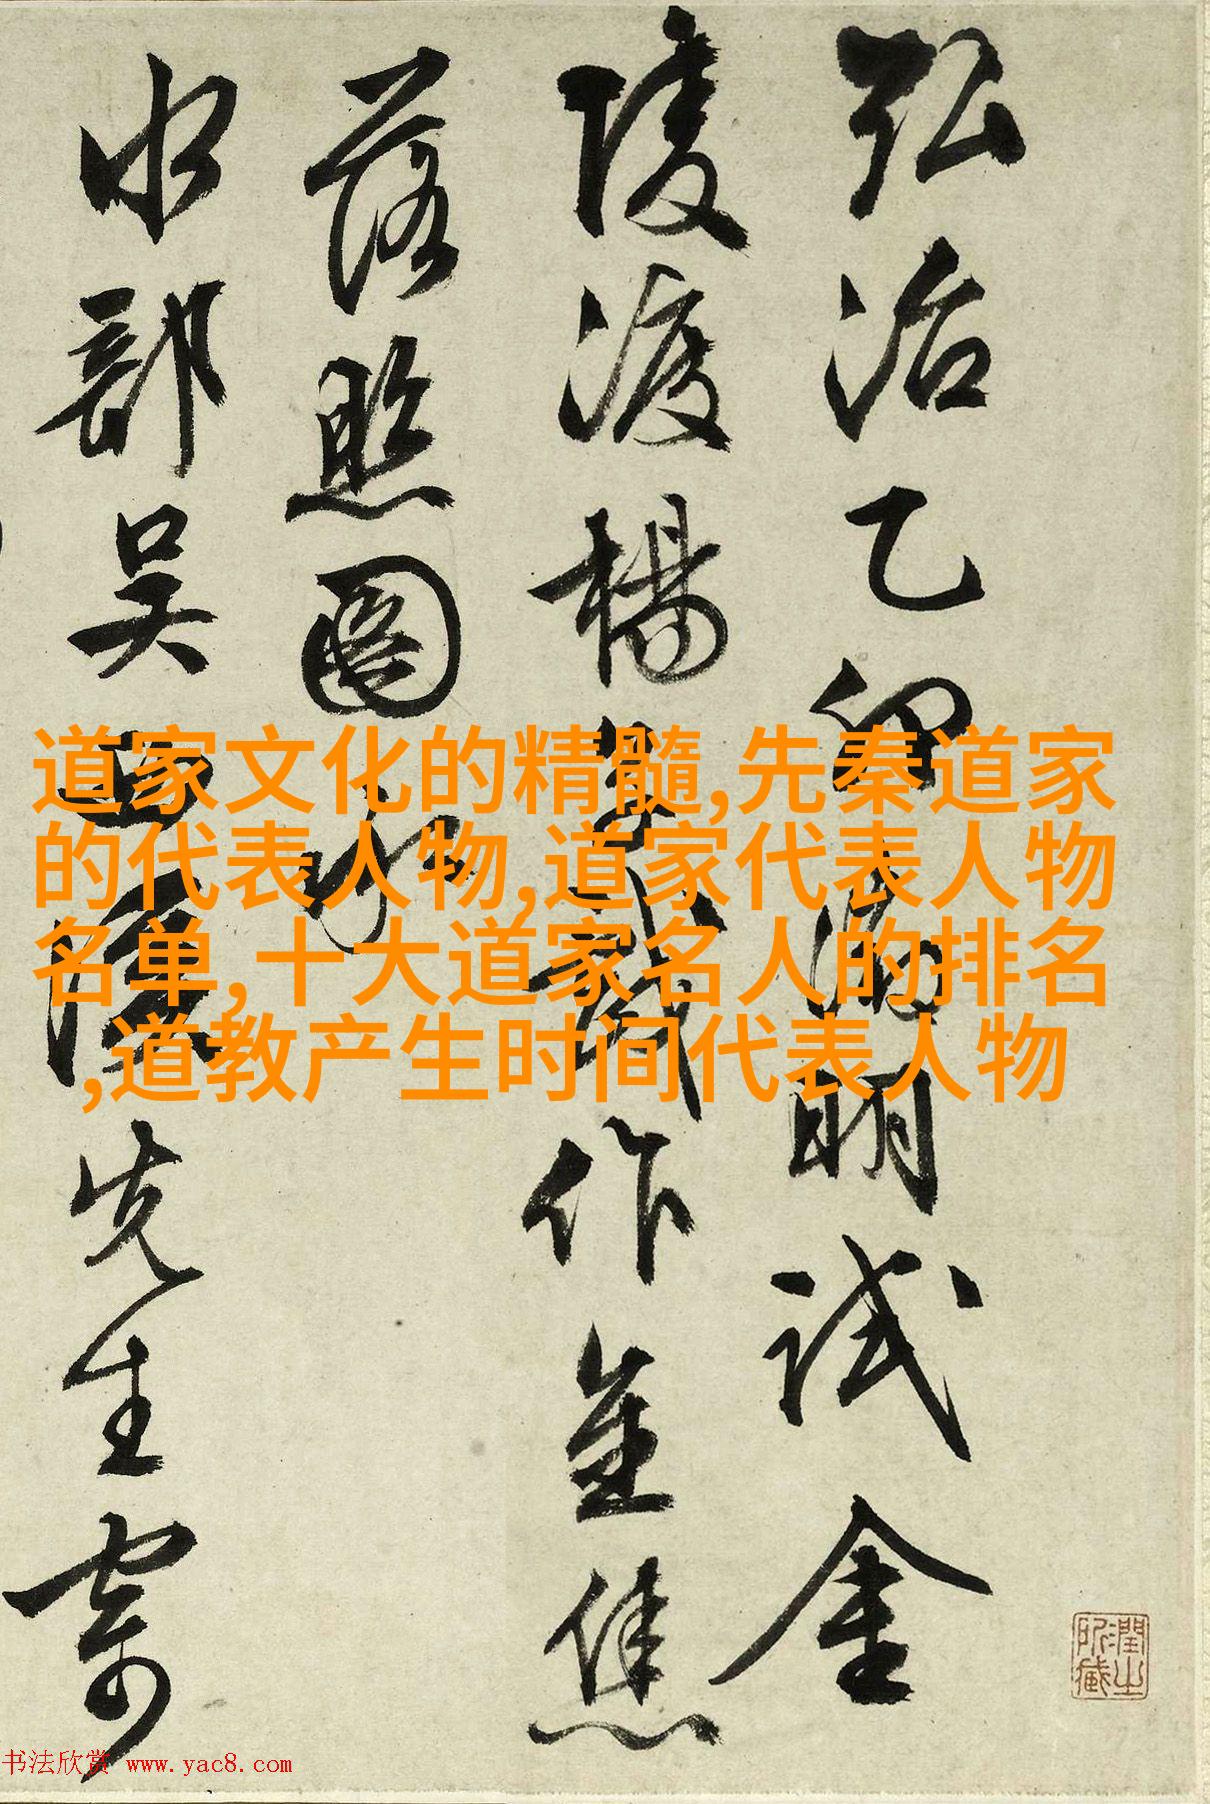 弘治乙卯明試金
陵渡楊子戲作金焦
落照圖
水部吳先生寄
道家文化的精髓,先秦道家
的代表人物,道家代表人物
名单,十大道家名人的排名
,道教产生时间代表人物
潤之所藏
书法欣赏 www.yac8.com